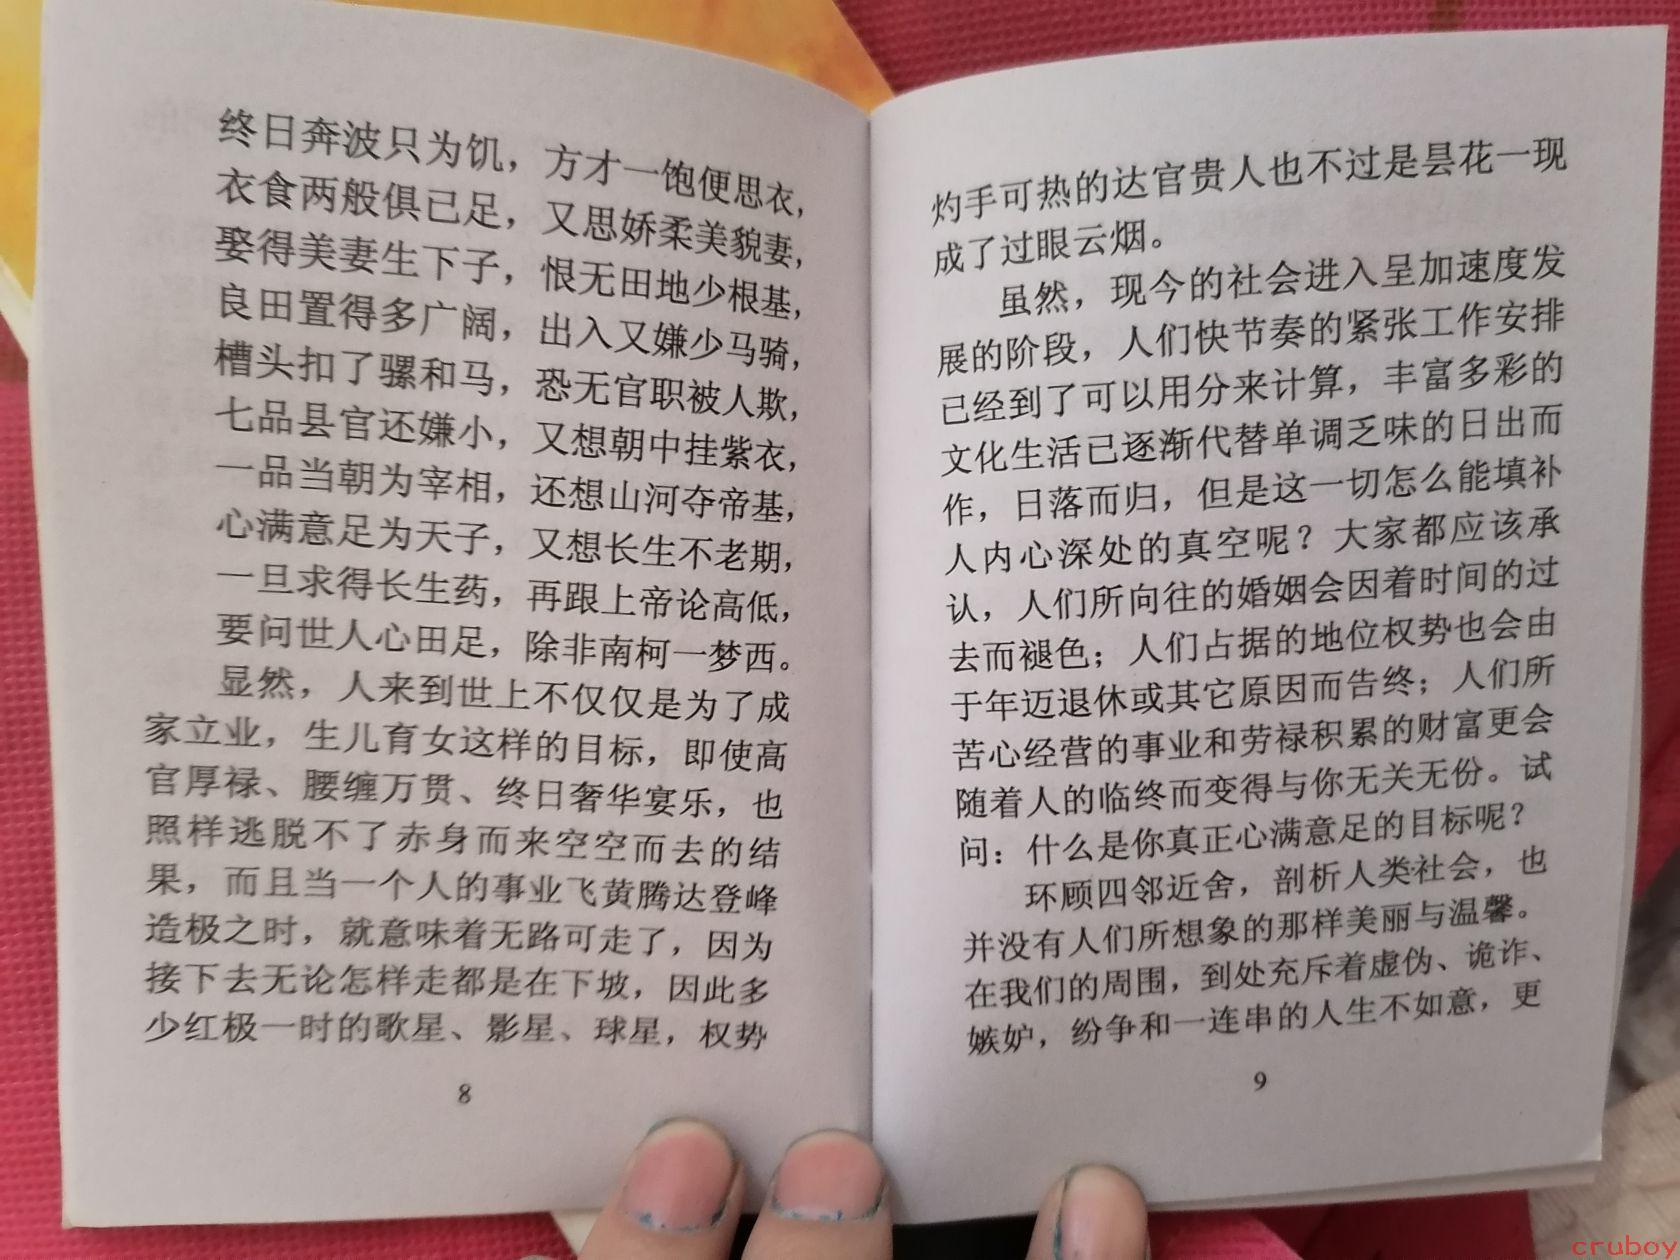 终日奔波只为饥，方才一饱便思衣，
衣食两般俱已足，又思娇柔美貌妻，
娶得美妻生下子，恨无田地少根基，
良田置得多广阔，出入又嫌少马骑，
槽头扣了骡和马，恐无官职被人欺，
七品县官还嫌小，又想朝中挂紫衣，
一品当朝为宰相，还想山河夺帝基，
心满意足为天子，又想长生不老期，
一旦求得长生药，再跟上帝论高低，
要问世人心田足，除非南柯一梦西。
显然，人来到世上不仅仅是为了成
家立业，生儿育女这样的目标，即使高
官厚禄、腰缠万贯、终日奢华宴乐，也
照样逃脱不了赤身而来空空而去的结
果，而且当一个人的事业飞黄腾达登峰
造极之时，就意味着无路可走了，因为
接下去无论怎样走都是在下坡，因此多
少红极一时的歌星、影星、球星，权势
8
灼手可热的达官贵人也不过是昙花一现
成了过眼云烟。
虽然，现今的社会进入呈加速度发
展的阶段，人们快节奏的紧张工作安排
已经到了可以用分来计算，丰富多彩的
文化生活已逐渐代替单调乏味的日出而
作，日落而归，但是这一切怎么能填补
人内心深处的真空呢？大家都应该承
认，人们所向往的婚姻会因着时间的过
去而褪色；人们占据的地位权势也会由
于年迈退休或其它原因而告终；人们所
苦心经营的事业和劳禄积累的财富更会
随着人的临终而变得与你无关无份。试
问：什么是你真正心满意足的目标呢？
环顾四邻近舍，剖析人类社会，也
并没有人们所想象的那样美丽与温馨。
在我们的周围，到处充斥着虚伪、诡诈、
嫉妒，纷争和一连串的人生不如意，更
9
cruboy